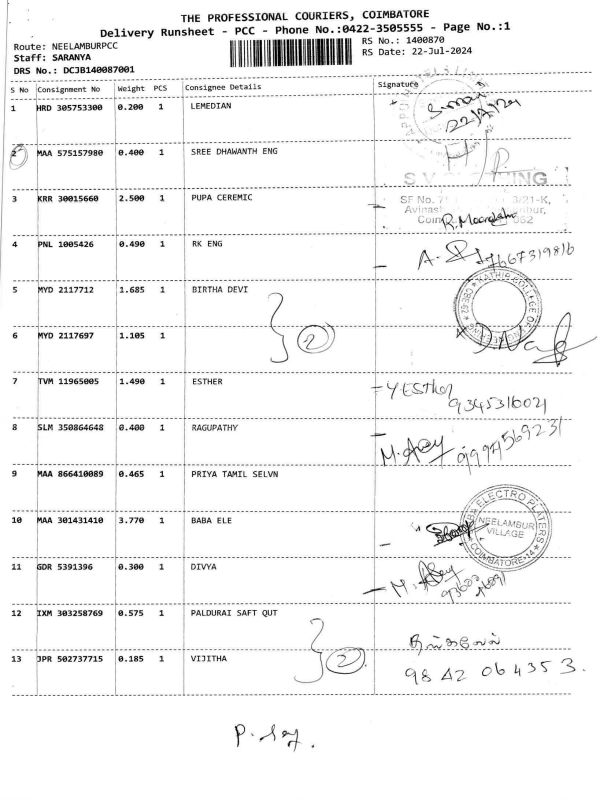 THE PROFESSIONAL COURIERS, COIMBATORE
Delivery Runsheet - PCC - Phone No.:0422-3505555 - Page No.:1
Route: NEELAMBURPCC
RS No.: 1400870
Staff: SARANYA
RS Date: 22-Jul-2024
DRS No.: DCJB140087001
S No Consignment No Weight PCS Consignee Details Signature
1 HRD 305753300 0.200 1 LEMEDIAN
22/7/24
2 MAA 575157980 0.400 1 SREE DHAWANTH ENG
3 KRR 30015660 2.500 1 PUPA CEREMIC
SF No.
4 PNL 1005426 0.490 1 RK ENG
A.
5 MYD 2117712 1.685 1 BIRTHA DEVI
KATHIR COLLEGE OF
2
6 MYD 2117697 1.105 1
7 TVM 11965005 1.490 1 ESTHER
Y Esther
9345316021
8 SLM 350864648 0.400 1 RAGUPATHY
9 MAA 866410089 0.465 1 PRIYA TAMIL SELVN
10 MAA 301431410 3.770 1 BABA ELE
BABA ELECTRO PLATERS
NEELAMBUR
VILLAGE
COIMBATORE-14
11 GDR 5391396 0.300 1 DIVYA
12 IXM 303258769 0.575 1 PALDURAI SAFT QUT
தங்கவேல்
13 JPR 502737715 0.185 1 VIJITHA
2
9842064353.